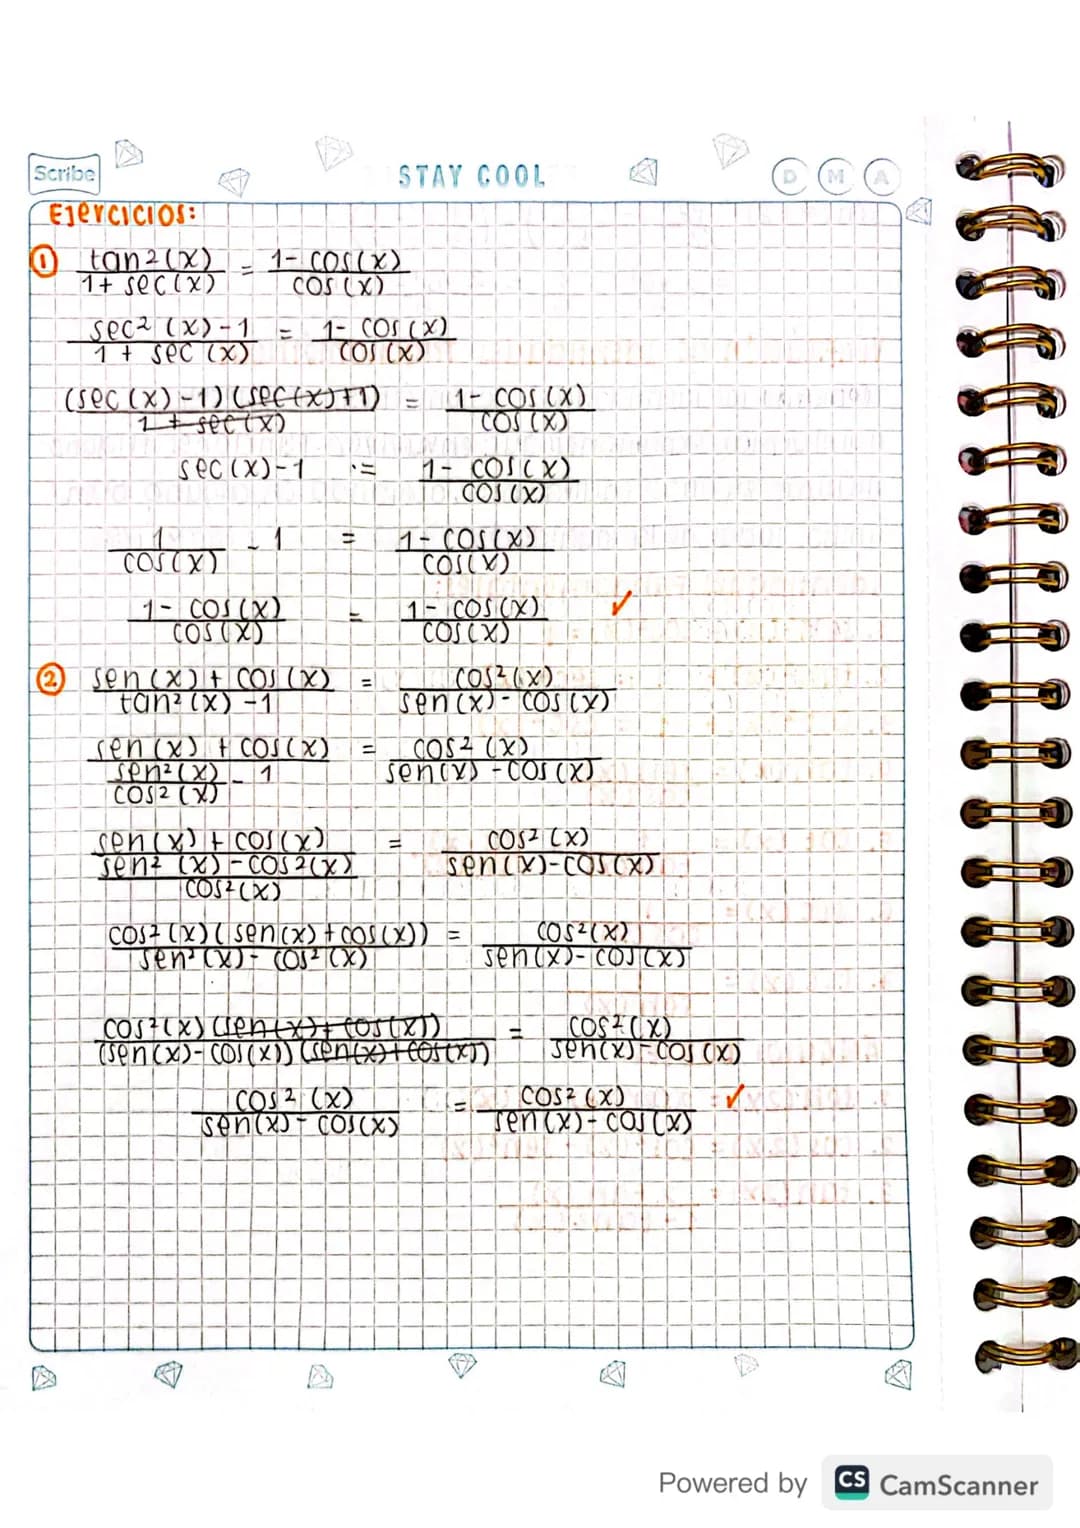 Scribe
STAY COOL
D M A
Ejercicios:
① tan2(x) / 1+ sec(x) = 1- cos(x) / cos(x)
sec²(x)-1 / 1 + sec(x) = 1- cos(x) / cos(x)
(sec(x)-1)(sec(x)+1) / 1 + sec(x) = 1- cos(x) / cos(x)
sec(x)-1 = 1- cos(x) / cos(x)
1 / cos(x) - 1 = 1- cos(x) / cos(x)
1- cos(x) / cos(x) = 1- cos(x) / cos(x) ✓
② sen(x)+ cos(x) / tan²(x) -1 = cos²(x) / sen(x)- cos(x)
sen(x) + cos(x) / sen²(x) / cos²(x) - 1 = cos²(x) / sen(x) -cos(x)
sen(x)+cos(x) / sen²(x)-cos²(x) / cos²(x) = cos²(x) / sen(x)-cos(x)
cos²(x)(sen(x)+cos(x)) / sen²(x)- cos²(x) = cos²(x) / sen(x)- cos(x)
cos²(x)(sen(x)+cos(x)) / (sen(x)-cos(x))(sen(x)+cos(x)) = cos²(x) / sen(x)-cos(x)
cos²(x) / sen(x)- cos(x) = cos²(x) / sen(x)-cos(x) ✓
Powered by CS CamScanner